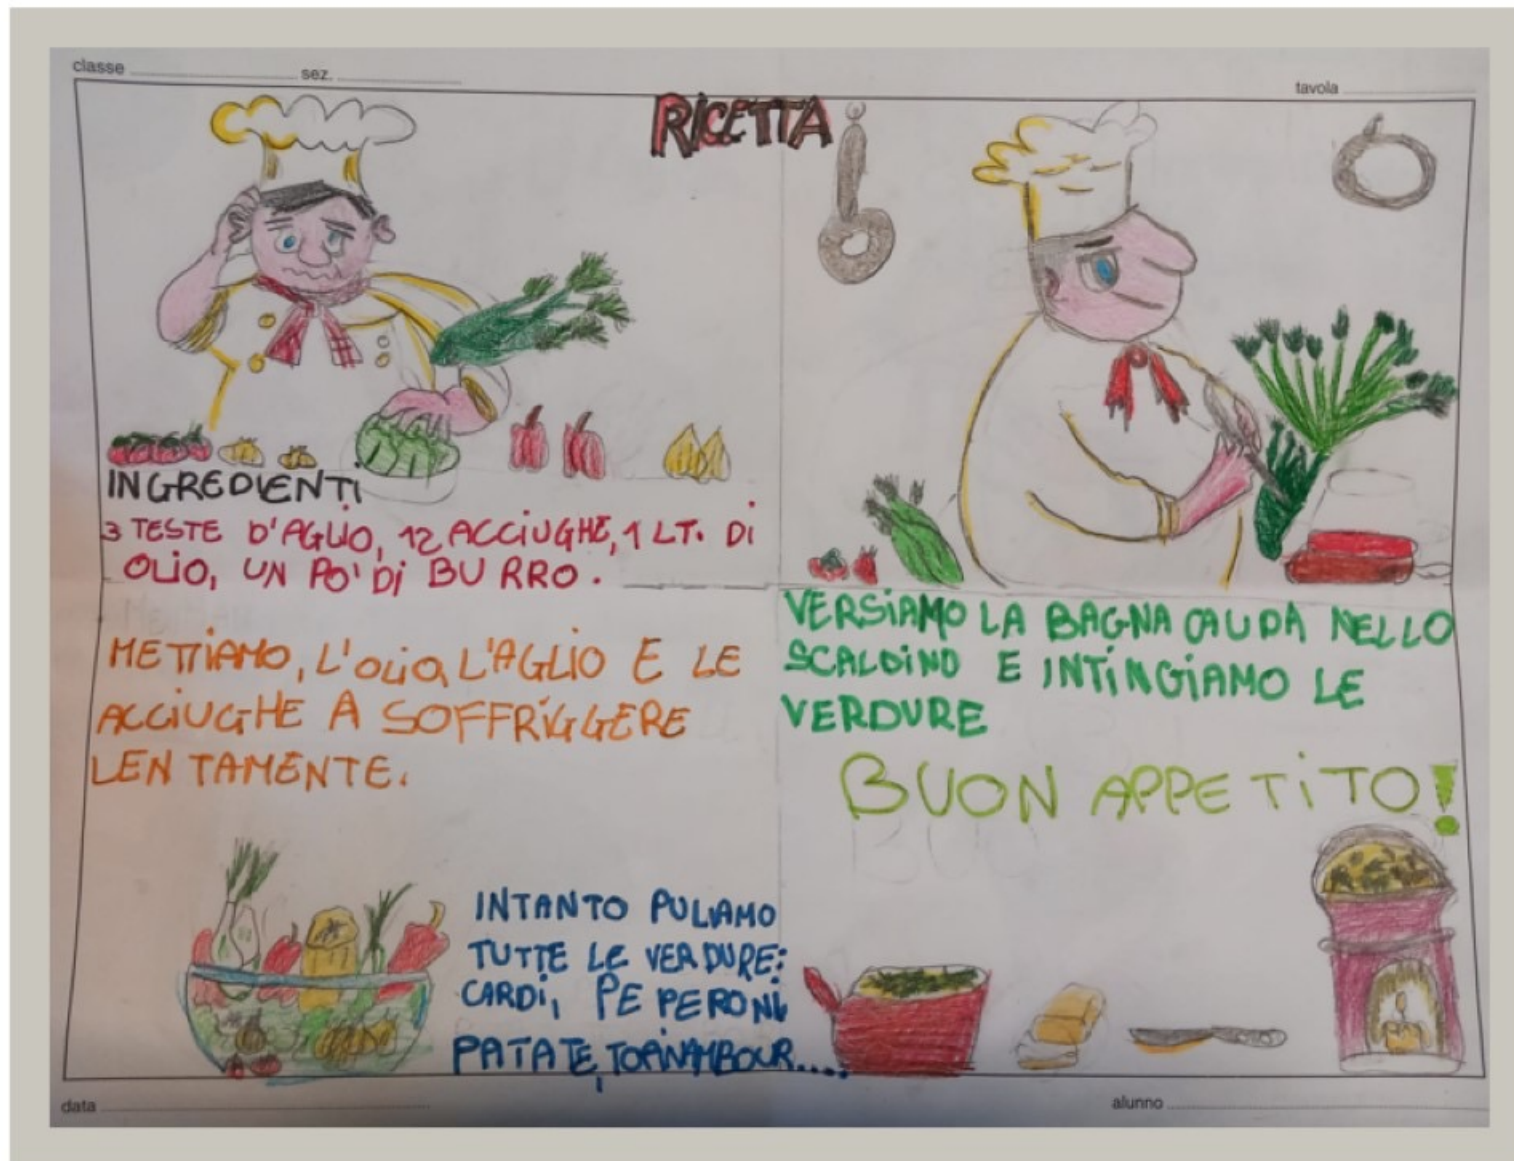 classe
sez.
tavola
RICETTA
INGREDIENTI
3 TESTE D'AGLIO, 12 ACCIUGHE, 1 LT. DI
OLIO, UN PO' DI BURRO.
METTIAMO, L'OLIO, L'AGLIO E LE
ACCIUGHE A SOFFRIGGERE
LENTAMENTE.
INTANTO PULIAMO
TUTTE LE VERDURE:
CARDI, PEPERONI
PATATE, TOPINAMBOUR....
VERSIAMO LA BAGNA CAUDA NELLO
SCALDINO E INTINGIAMO LE
VERDURE
BUON APPETITO!
data
alunno